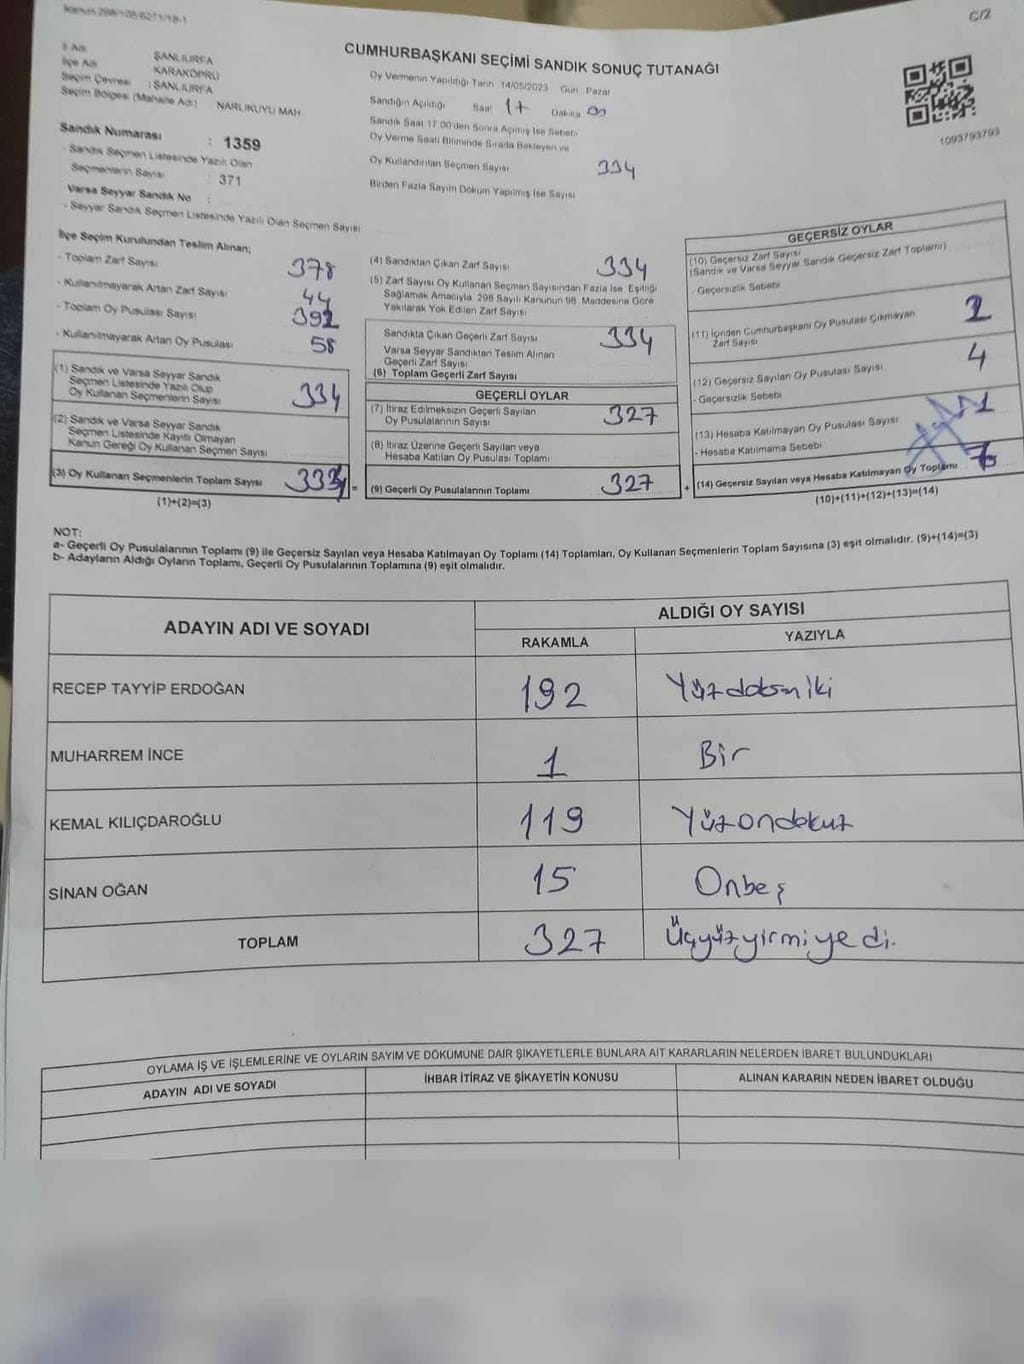 Kanun:298/105/6271/18-1
C/2
İl Adı ŞANLIURFA
İlçe Adı KARAKÖPRÜ
Seçim Çevresi : ŞANLIURFA
Seçim Bölgesi (Mahalle Adı) : NARLIKUYU MAH
Sandık Numarası : 1359
- Sandık Seçmen Listesinde Yazılı Olan
Seçmenlerin Sayısı : 371
Varsa Seyyar Sandık No :
- Seyyar Sandık Seçmen Listesinde Yazılı Olan Seçmen Sayısı
CUMHURBAŞKANI SEÇİMİ SANDIK SONUÇ TUTANAĞI
Oy Vermenin Yapıldığı Tarih 14/05/2023 Gün Pazar
Sandığın Açıldığı Saat 17 Dakika 00
Sandık Saat 17.00'den Sonra Açılmış İse Sebebi
Oy Verme Saati Bitiminde Sırada Bekleyen ve
Oy Kullandırılan Seçmen Sayısı 334
Birden Fazla Sayım Döküm Yapılmış İse Sayısı
1093793793
İlçe Seçim Kurulundan Teslim Alınan;
- Toplam Zarf Sayısı 378
- Kullanılmayarak Artan Zarf Sayısı 44
- Toplam Oy Pusulası Sayısı 392
- Kullanılmayarak Artan Oy Pusulası 58
(1) Sandık ve Varsa Seyyar Sandık
Seçmen Listesinde Yazılı Olup
Oy Kullanan Seçmenlerin Sayısı 334
(2) Sandık ve Varsa Seyyar Sandık
Seçmen Listesinde Kayıtlı Olmayan
Kanun Gereği Oy Kullanan Seçmen Sayısı
(3) Oy Kullanan Seçmenlerin Toplam Sayısı 334 =
(1)+(2)=(3)
(4) Sandıktan Çıkan Zarf Sayısı 334
(5) Zarf Sayısı Oy Kullanan Seçmen Sayısından Fazla İse, Eşitliği
Sağlamak Amacıyla, 298 Sayılı Kanunun 98. Maddesine Göre
Yakılarak Yok Edilen Zarf Sayısı
Sandıkta Çıkan Geçerli Zarf Sayısı 334
Varsa Seyyar Sandıktan Teslim Alınan
Geçerli Zarf Sayısı
(6) Toplam Geçerli Zarf Sayısı
GEÇERLİ OYLAR
(7) İtiraz Edilmeksizin Geçerli Sayılan
Oy Pusulalarının Sayısı 327
(8) İtiraz Üzerine Geçerli Sayılan veya
Hesaba Katılan Oy Pusulası Toplamı
(9) Geçerli Oy Pusulalarının Toplamı 327 +
GEÇERSİZ OYLAR
(10) Geçersiz Zarf Sayısı
(Sandık ve Varsa Seyyar Sandık Geçersiz Zarf Toplamı)
- Geçersizlik Sebebi
(11) İçinden Cumhurbaşkanı Oy Pusulası Çıkmayan
Zarf Sayısı 2
(12) Geçersiz Sayılan Oy Pusulası Sayısı 4
- Geçersizlik Sebebi
(13) Hesaba Katılmayan Oy Pusulası Sayısı 1
- Hesaba Katılmama Sebebi
(14) Geçersiz Sayılan veya Hesaba Katılmayan Oy Toplamı
(10)+(11)+(12)+(13)=(14)
NOT:
a- Geçerli Oy Pusulalarının Toplamı (9) ile Geçersiz Sayılan veya Hesaba Katılmayan Oy Toplamı (14) Toplamları, Oy Kullanan Seçmenlerin Toplam Sayısına (3) eşit olmalıdır. (9)+(14)=(3)
b- Adayların Aldığı Oyların Toplamı, Geçerli Oy Pusulalarının Toplamına (9) eşit olmalıdır.
ADAYIN ADI VE SOYADI
ALDIĞI OY SAYISI
RAKAMLA YAZIYLA
RECEP TAYYİP ERDOĞAN 192 Yüzdoksaniki
MUHARREM İNCE 1 Bir
KEMAL KILIÇDAROĞLU 119 Yüzondokuz
SİNAN OĞAN 15 Onbeş
TOPLAM 327 Üçyüzyirmiyedi.
OYLAMA İŞ VE İŞLEMLERİNE VE OYLARIN SAYIM VE DÖKÜMÜNE DAİR ŞİKAYETLERLE BUNLARA AİT KARARLARIN NELERDEN İBARET BULUNDUKLARI
ADAYIN ADI VE SOYADI İHBAR İTİRAZ VE ŞİKAYETİN KONUSU ALINAN KARARIN NEDEN İBARET OLDUĞU